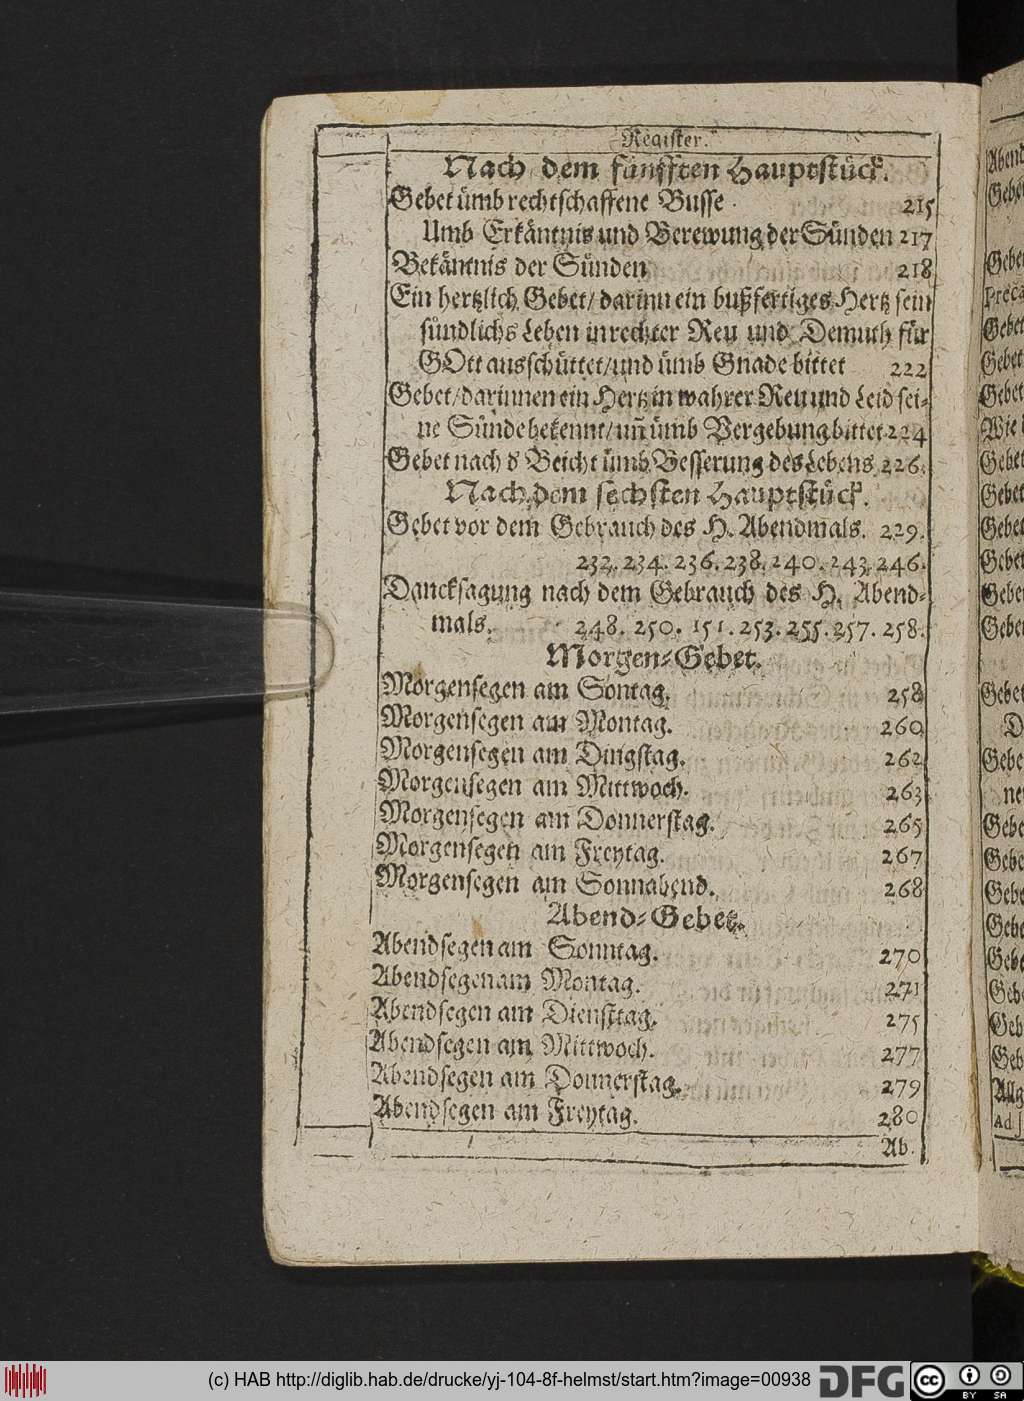 Register.
Nach dem fünfften Hauptstück.
Gebet ümb rechtschaffene Busse 215
Umb Erkäntnis und Berewung der Sünden 217
Bekäntnis der Sünden 218
Ein hertzlich Gebet/ darinn ein bußfertiges Hertz sein
sündlichs Leben in rechter Reu und Demuth für
GOtt ausschüttet/ und ümb Gnade bittet 222
Gebet/ darinnen ein Hertz in wahrer Reu und Leid sei-
ne Sünde bekennt/ uñ ümb Vergebung bittet 224
Gebet nach d' Beicht ümb Besserung des Lebens 226.
Nach dem sechsten Hauptstück.
Gebet vor dem Gebrauch des H. Abendmals. 229.
232. 234. 236. 238. 240. 243. 246.
Dancksagung nach dem Gebrauch des H. Abend-
mals. 248. 250. 151. 253. 255. 257. 258.
Morgen-Gebet.
Morgensegen am Sontag. 258
Morgensegen am Montag. 260
Morgensegen am Dingstag. 262
Morgensegen am Mittwoch. 263
Morgensegen am Donnerstag. 265
Morgensegen am Freytag. 267
Morgensegen am Sonnabend. 268
Abend-Gebet.
Abendsegen am Sonntag. 270
Abendsegen am Montag. 271
Abendsegen am Dienstag. 275
Abendsegen am Mittwoch. 277
Abendsegen am Donnerstag. 279
Abendsegen am Freytag. 280
Ab.
(c) HAB http://diglib.hab.de/drucke/yj-104-8f-helmst/start.htm?image=00938
DFG
cc BY SA